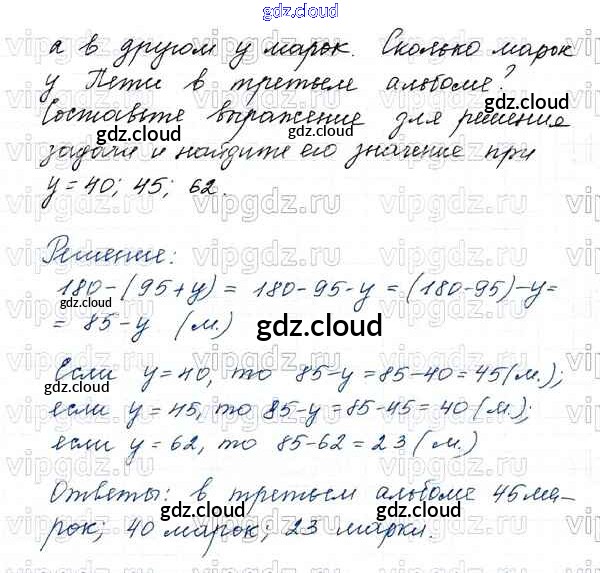 gdz.cloud
а в другом у марок. Сколько марок
у Пети в третьем альбоме?
gdz.cloud
Составьте выражение для решения
gdz.cloud gdz.cloud
задачи и найдите его значение при
у = 40; 45; 62.
vipgdz.ru vipgdz.ru vipgdz.ru
Решение:
180-(95+у) = 180-95-у = (180-95)-у=
gdz.cloud
= 85-у (м.) gdz.cloud
Если у=40, то 85-у=85-40=45(м.);
gdz.cloud
если у=45, то 85-у=85-45=40(м.);
gdz.cloud
если у=62, то 85-62=23(м.)
Ответы: в третьем альбоме 45 ма-
gdz.cloud gdz.cloud
рок; 40 марок; 23 марки.